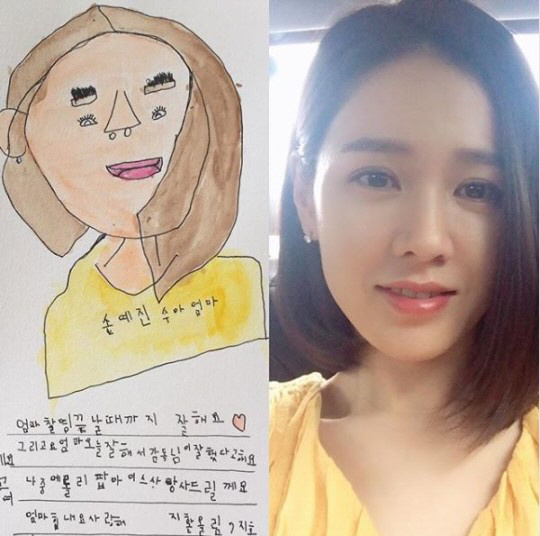 손예진 수아 엄마
엄마 촬영 끝날때까지 잘해요
그리고요 엄마 오늘 잘해서 감동님이 잘했다고해요
나중에 롤리 팝 아이스 사 사드릴께요
엄마 힘내요 사랑해 지환올림